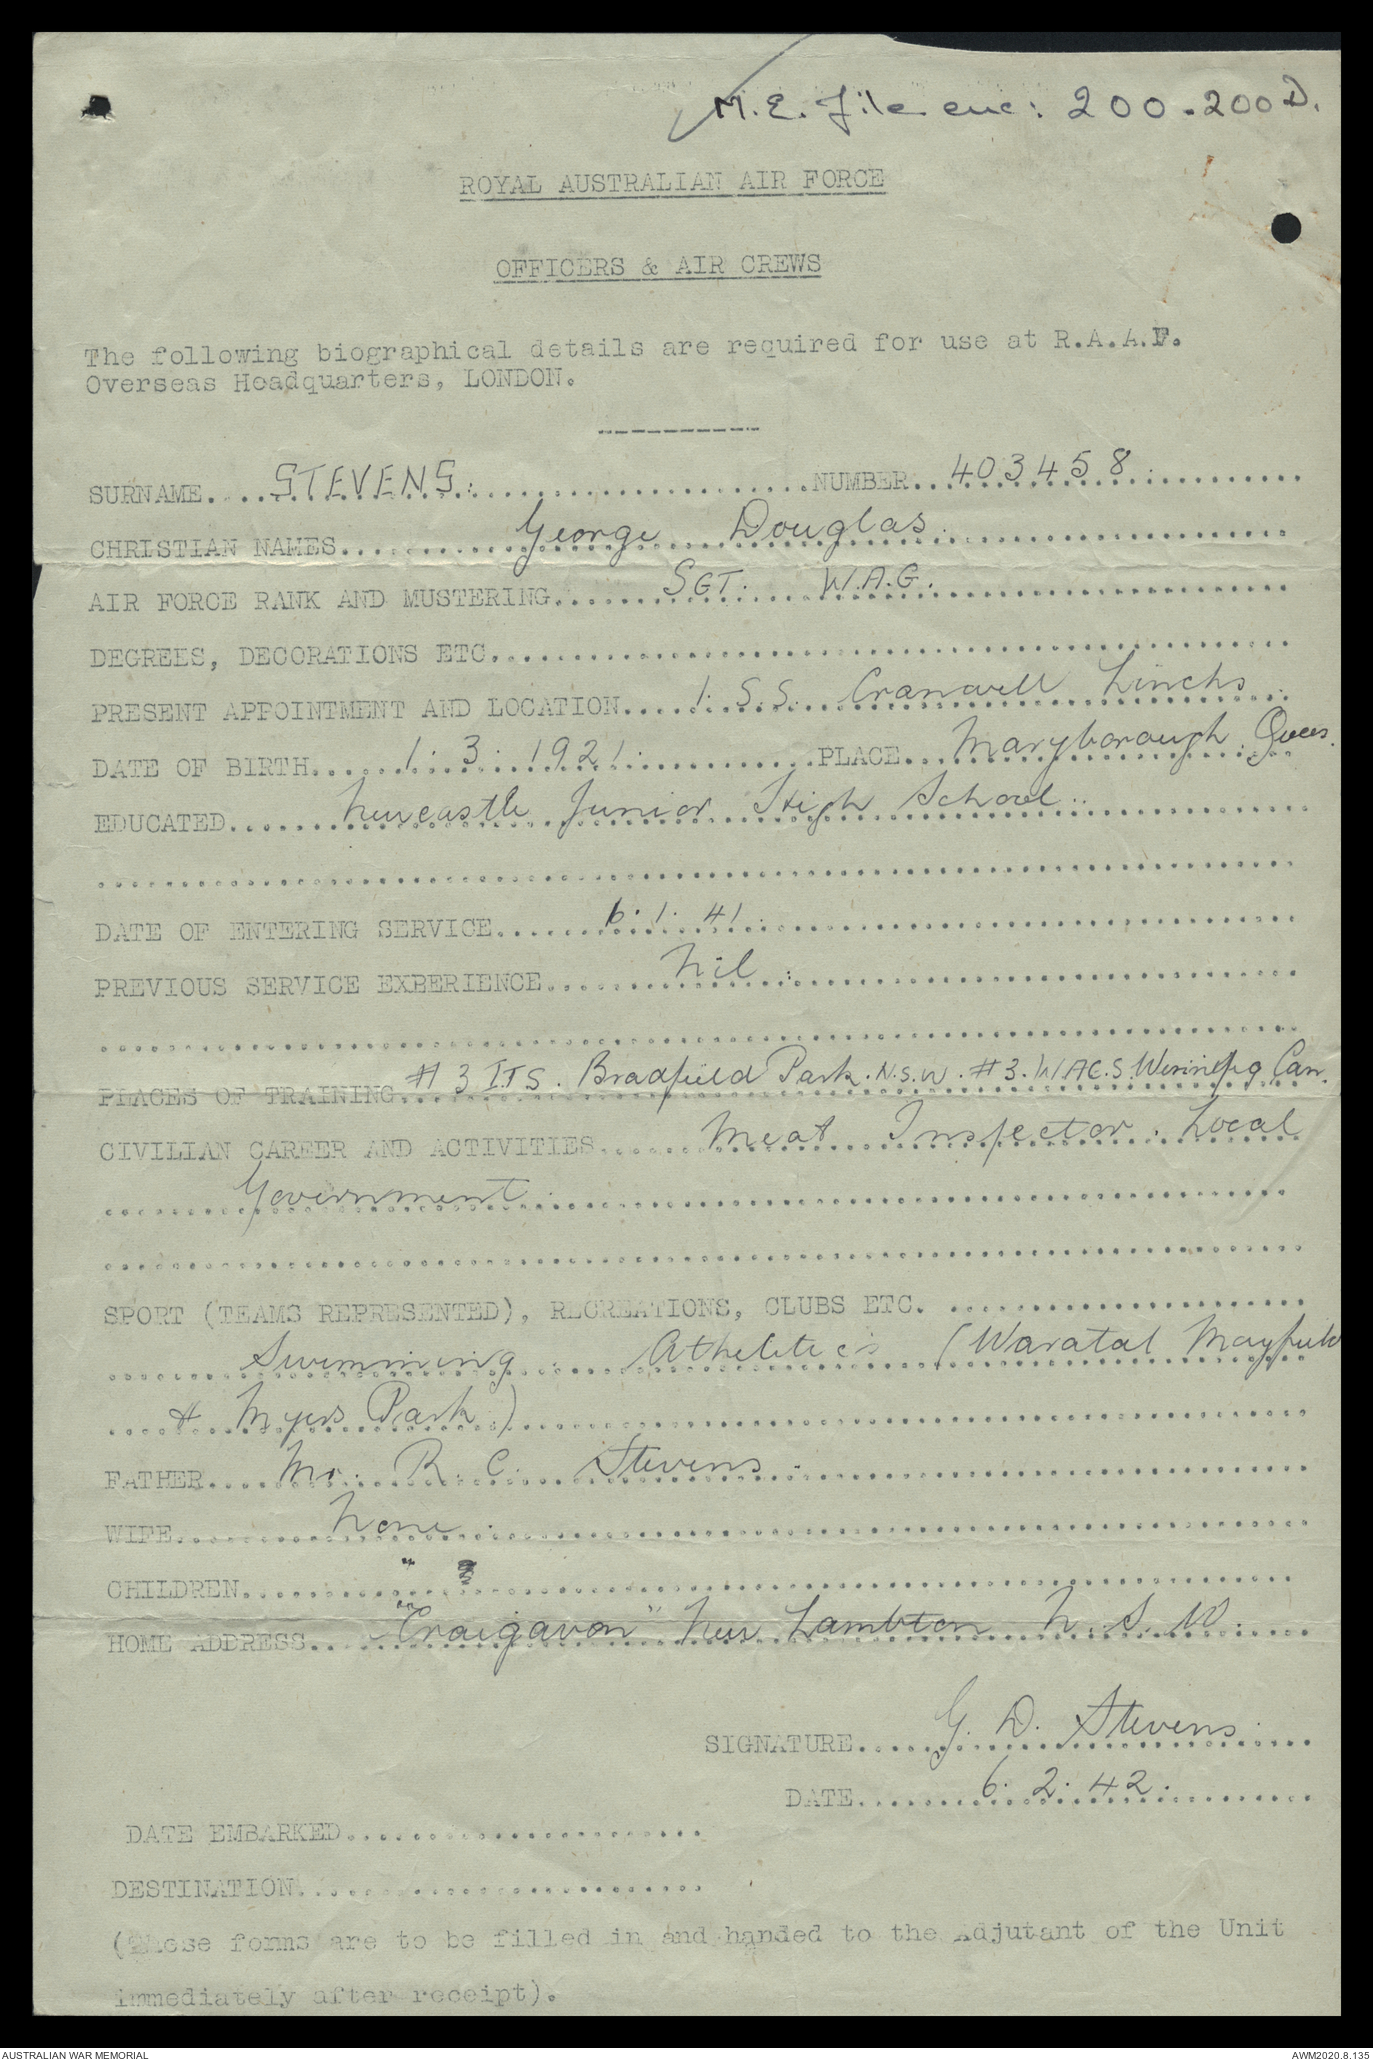 M.E. file enc: 200-200D.
ROYAL AUSTRALIAN AIR FORCE
OFFICERS & AIR CREWS
The following biographical details are required for use at R.A.A.F.
Overseas Headquarters, LONDON.
SURNAME.... STEVENS. NUMBER... 403458.
CHRISTIAN NAMES.... George Douglas.
AIR FORCE RANK AND MUSTERING.... SGT. W.A.G.
DEGREES, DECORATIONS ETC....
PRESENT APPOINTMENT AND LOCATION.... 1. S.S. Cranwell Lincks.
DATE OF BIRTH.... 1. 3. 1921. PLACE... Maryborough. Quees.
EDUCATED.... Newcastle Junior High School.
DATE OF ENTERING SERVICE.... 6. 1. 41.
PREVIOUS SERVICE EXPERIENCE.... Nil.
PLACES OF TRAINING.... # 3 I.T.S. Bradfield Park. N.S.W. # 3. W.A.G.S. Winnipeg Can.
CIVILIAN CAREER AND ACTIVITIES.... Meat Inspector. Local
Government.
SPORT (TEAMS REPRESENTED), RECREATIONS, CLUBS ETC. ....
Swimming. Atheletics (Waratal Mayfield
& Myers Park)
FATHER.... Mr. R. C. Stevens.
WIFE.... None.
CHILDREN.... "
HOME ADDRESS.... "Craigavon" New Lambton N.S.W.
SIGNATURE.... G. D. Stevens.
DATE.... 6. 2. 42.
DATE EMBARKED....
DESTINATION....
(These forms are to be filled in and handed to the Adjutant of the Unit
immediately after receipt).
AUSTRALIAN WAR MEMORIAL AWM2020.8.135